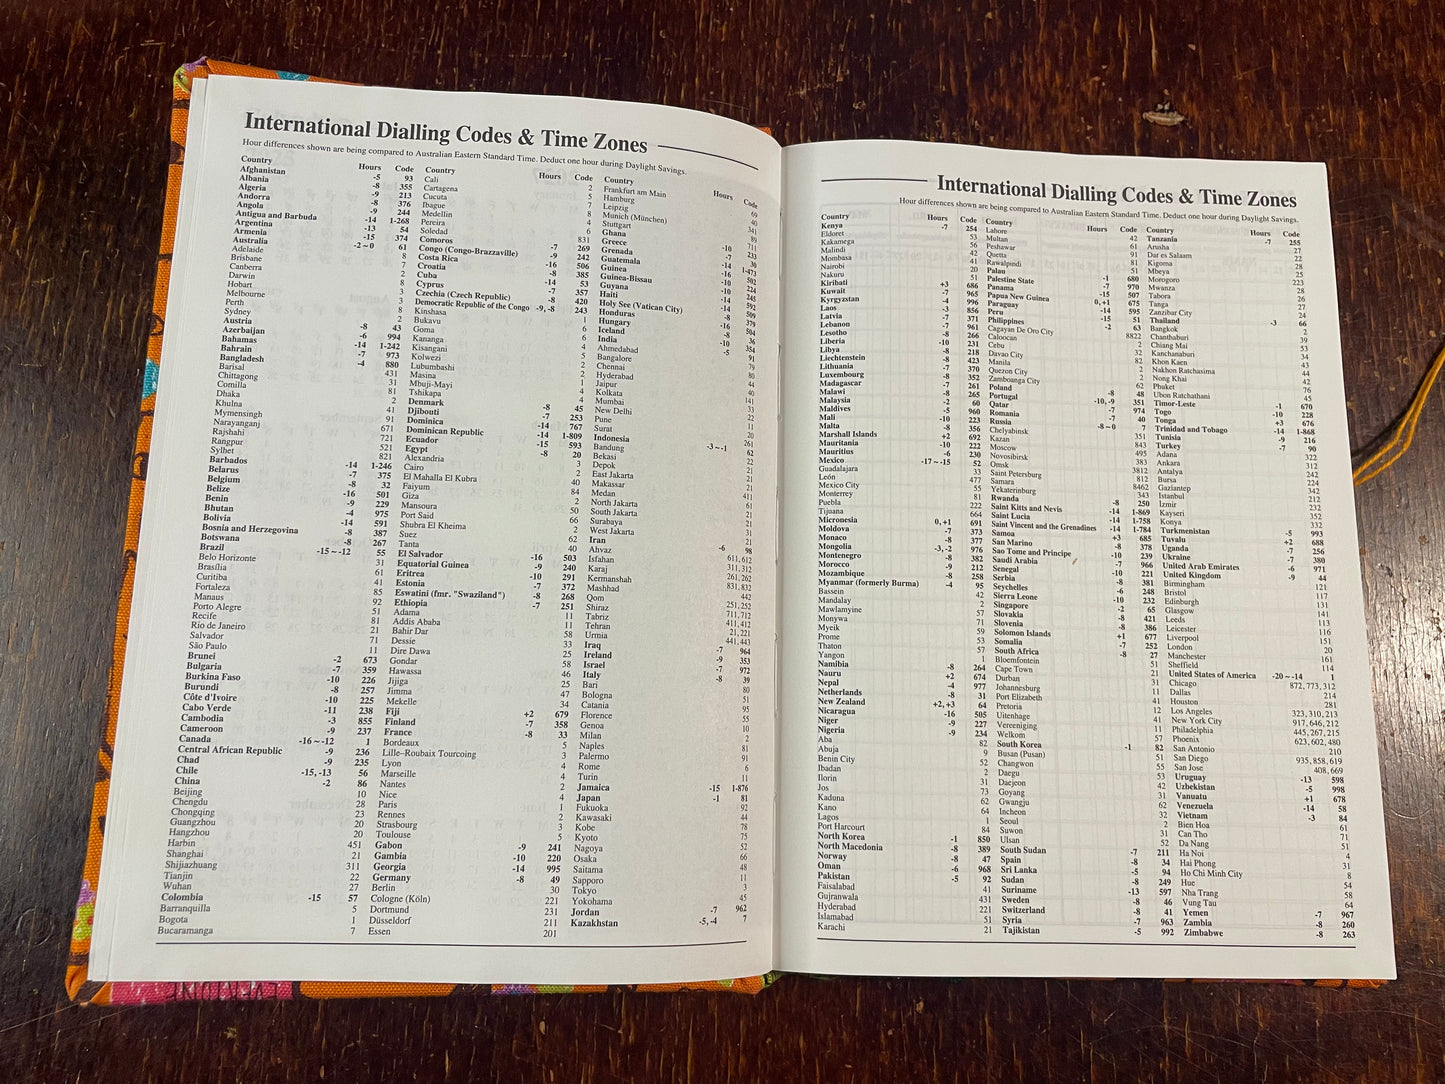 International Dialling Codes & Time Zones
Hour differences shown are being compared to Australian Eastern Standard Time. Deduct one hour during Daylight Savings.
Country Hours Code
Afghanistan -5 93
Albania -8 355
Algeria -9 213
Andorra -8 376
Angola -9 244
Antigua and Barbuda -14 1-268
Argentina -13 54
Armenia -15 374
Australia -2 ~ 0 61
Adelaide 8
Brisbane 7
Canberra 2
Darwin 8
Hobart 3
Melbourne 3
Perth 8
Sydney 2
Austria -8 43
Azerbaijan -6 994
Bahamas -14 1-242
Bahrain -7 973
Bangladesh -4 880
Barisal 431
Chittagong 31
Comilla 81
Dhaka 2
Khulna 41
Mymensingh 91
Narayanganj 671
Rajshahi 721
Rangpur 521
Sylhet 821
Barbados -14 1-246
Belarus -7 375
Belgium -8 32
Belize -16 501
Benin -9 229
Bhutan -4 975
Bolivia -14 591
Bosnia and Herzegovina -8 387
Botswana -8 267
Brazil -15 ~ -12 55
Belo Horizonte 31
Brasília 61
Curitiba 41
Fortaleza 85
Manaus 92
Porto Alegre 51
Recife 81
Rio de Janeiro 21
Salvador 71
São Paulo 11
Brunei -2 673
Bulgaria -7 359
Burkina Faso -10 226
Burundi -8 257
Côte d'Ivoire -10 225
Cabo Verde -11 238
Cambodia -3 855
Cameroon -9 237
Canada -16 ~ -12 1
Central African Republic -9 236
Chad -9 235
Chile -15, -13 56
China -2 86
Beijing 10
Chengdu 28
Chongqing 23
Guangzhou 20
Hangzhou 20
Harbin 451
Shanghai 21
Shijiazhuang 311
Tianjin 22
Wuhan 27
Colombia -15 57
Barranquilla 5
Bogota 1
Bucaramanga 7
Country Hours Code
Cali 2
Cartagena 5
Cucuta 7
Ibague 8
Medellin 4
Pereira 6
Soledad 831
Comoros -7 269
Congo (Congo-Brazzaville) -9 242
Costa Rica -16 506
Croatia -8 385
Cuba -14 53
Cyprus -7 357
Czechia (Czech Republic) -8 420
Democratic Republic of the Congo -9, -8 243
Kinshasa 1
Bukavu 6
Goma 6
Kananga 4
Kisangani 5
Kolwezi 2
Lubumbashi 2
Masina 1
Mbuji-Mayi 4
Tshikapa 4
Denmark -8 45
Djibouti -7 253
Dominica -14 767
Dominican Republic -14 1-809
Ecuador -15 593
Egypt -8 20
Alexandria 3
Cairo 2
El Mahalla El Kubra 40
Faiyum 84
Giza 2
Mansoura 50
Port Said 66
Shubra El Kheima 2
Suez 62
Tanta 40
El Salvador -16 503
Equatorial Guinea -9 240
Eritrea -10 291
Estonia -7 372
Eswatini (fmr. "Swaziland") -8 268
Ethiopia -7 251
Adama 11
Addis Ababa 11
Bahir Dar 58
Dessie 33
Dire Dawa 25
Gondar 58
Hawassa 46
Jijiga 25
Jimma 47
Mekelle 34
Fiji +2 679
Finland -7 358
France -8 33
Bordeaux 5
Lille–Roubaix Tourcoing 3
Lyon 4
Marseille 4
Nantes 2
Nice 4
Paris 1
Rennes 2
Strasbourg 3
Toulouse 5
Gabon -9 241
Gambia -10 220
Georgia -14 995
Germany -8 49
Berlin 30
Cologne (Köln) 221
Dortmund 231
Düsseldorf 211
Essen 201
Country Hours Code
Frankfurt am Main 69
Hamburg 40
Leipzig 341
Munich (München) 89
Stuttgart 711
Ghana -10 233
Greece -7 30
Grenada -14 1-473
Guatemala -16 502
Guinea -10 224
Guinea-Bissau -10 245
Guyana -14 592
Haiti -14 509
Holy See (Vatican City) -8 379
Honduras -16 504
Hungary -8 36
Iceland -10 354
India -5 91
Ahmedabad 79
Bangalore 80
Chennai 44
Hyderabad 40
Jaipur 141
Kolkata 33
Mumbai 22
New Delhi 11
Pune 20
Surat 261
Indonesia -3 ~ -1 62
Bandung 22
Bekasi 21
Depok 21
East Jakarta 21
Makassar 411
Medan 61
North Jakarta 21
South Jakarta 21
Surabaya 21
West Jakarta 21
Iran -6 98
Ahvaz 611, 612
Isfahan 311, 312
Karaj 261, 262
Kermanshah 831, 832
Mashhad 442
Qom 251, 252
Shiraz 711, 712
Tabriz 411, 412
Tehran 21, 221
Urmia 441, 443
Iraq -7 964
Ireland -9 353
Israel -7 972
Italy -8 39
Bari 80
Bologna 51
Catania 95
Florence 55
Genoa 10
Milan 2
Naples 81
Palermo 91
Rome 6
Turin 11
Jamaica -15 1-876
Japan -1 81
Fukuoka 92
Kawasaki 44
Kobe 78
Kyoto 75
Nagoya 52
Osaka 66
Saitama 48
Sapporo 11
Tokyo 3
Yokohama 45
Jordan -7 962
Kazakhstan -5, -4 7
International Dialling Codes & Time Zones
Hour differences shown are being compared to Australian Eastern Standard Time. Deduct one hour during Daylight Savings.
Country Hours Code
Kenya -7 254
Eldoret 53
Kakamega 56
Malindi 42
Mombasa 41
Nairobi 20
Nakuru 51
Kiribati +3 686
Kuwait -7 965
Kyrgyzstan -4 996
Laos -3 856
Latvia -7 371
Lebanon -7 961
Lesotho -8 266
Liberia -10 231
Libya -8 218
Liechtenstein -8 423
Lithuania -7 370
Luxembourg -8 352
Madagascar -7 261
Malawi -8 265
Malaysia -2 60
Maldives -5 960
Mali -10 223
Malta -8 356
Marshall Islands +2 692
Mauritania -10 222
Mauritius -6 230
Mexico -17 ~ -15 52
Guadalajara 33
León 477
Mexico City 55
Monterrey 81
Puebla 222
Tijuana 664
Micronesia 0, +1 691
Moldova -7 373
Monaco -8 377
Mongolia -3, -2 976
Montenegro -8 382
Morocco -9 212
Mozambique -8 258
Myanmar (formerly Burma) -4 95
Bassein 42
Mandalay 2
Mawlamyine 57
Monywa 71
Myeik 59
Prome 53
Thaton 57
Yangon 1
Namibia -8 264
Nauru +2 674
Nepal -4 977
Netherlands -8 31
New Zealand +2, +3 64
Nicaragua -16 505
Niger -9 227
Nigeria -9 234
Aba 82
Abuja 9
Benin City 52
Ibadan 2
Ilorin 31
Jos 73
Kaduna 62
Kano 64
Lagos 1
Port Harcourt 84
North Korea -1 850
North Macedonia -8 389
Norway -8 47
Oman -6 968
Pakistan -5 92
Faisalabad 41
Gujranwala 431
Hyderabad 221
Islamabad 51
Karachi 21
Country Hours Code
Lahore 42
Multan 61
Peshawar 91
Quetta 81
Rawalpindi 51
Palau -1 680
Palestine State -7 970
Panama -15 507
Papua New Guinea 0, +1 675
Paraguay -14 595
Peru -15 51
Philippines -2 63
Cagayan De Oro City 8822
Caloocan 2
Cebu 32
Davao City 82
Manila 2
Quezon City 2
Zamboanga City 62
Poland -8 48
Portugal -10, -9 351
Qatar -7 974
Romania -7 40
Russia -8 ~ 0 7
Chelyabinsk 351
Kazan 843
Moscow 495
Novosibirsk 383
Omsk 3812
Saint Petersburg 812
Samara 8462
Yekaterinburg 343
Rwanda -8 250
Saint Kitts and Nevis -14 1-869
Saint Lucia -14 1-758
Saint Vincent and the Grenadines -14 1-784
Samoa +3 685
San Marino -8 378
Sao Tome and Principe -10 239
Saudi Arabia -7 966
Senegal -10 221
Serbia -8 381
Seychelles -6 248
Sierra Leone -10 232
Singapore -2 65
Slovakia -8 421
Slovenia -8 386
Solomon Islands +1 677
Somalia -7 252
South Africa -8 27
Bloemfontein 51
Cape Town 21
Durban 31
Johannesburg 11
Port Elizabeth 41
Pretoria 12
Uitenhage 41
Vereeniging 11
Welkom 57
South Korea -1 82
Busan (Pusan) 51
Changwon 55
Daegu 53
Daejeon 42
Goyang 31
Gwangju 62
Incheon 32
Seoul 2
Suwon 31
Ulsan 52
South Sudan -7 211
Spain -8 34
Sri Lanka -5 94
Sudan -8 249
Suriname -13 597
Sweden -8 46
Switzerland -8 41
Syria -7 963
Tajikistan -5 992
Country Hours Code
Tanzania -7 255
Arusha 27
Dar es Salaam 22
Kigoma 28
Mbeya 25
Morogoro 223
Mwanza 28
Tabora 26
Tanga 27
Zanzibar City 24
Thailand -3 66
Bangkok 2
Chanthaburi 39
Chiang Mai 53
Kanchanaburi 34
Khon Kaen 43
Nakhon Ratchasima 44
Nong Khai 42
Phuket 76
Ubon Ratchathani 45
Timor-Leste -1 670
Togo -10 228
Tonga +3 676
Trinidad and Tobago -14 1-868
Tunisia -9 216
Turkey -7 90
Adana 322
Ankara 312
Antalya 242
Bursa 224
Gaziantep 342
Istanbul 212
İzmir 232
Kayseri 352
Konya 332
Turkmenistan -5 993
Tuvalu +2 688
Uganda -7 256
Ukraine -7 380
United Arab Emirates -6 971
United Kingdom -9 44
Birmingham 121
Bristol 117
Edinburgh 131
Glasgow 141
Leeds 113
Leicester 116
Liverpool 151
London 20
Manchester 161
Sheffield 114
United States of America -20 ~ -14 1
Chicago 872, 773, 312
Dallas 214
Houston 281
Los Angeles 323, 310, 213
New York City 917, 646, 212
Philadelphia 445, 267, 215
Phoenix 623, 602, 480
San Antonio 210
San Diego 935, 858, 619
San Jose 408, 669
Uruguay -13 598
Uzbekistan -5 998
Vanuatu +1 678
Venezuela -14 58
Vietnam -3 84
Bien Hoa 61
Can Tho 71
Da Nang 51
Ha Noi 4
Hai Phong 31
Ho Chi Minh City 8
Hue 54
Nha Trang 58
Vung Tau 64
Yemen -7 967
Zambia -8 260
Zimbabwe -8 263